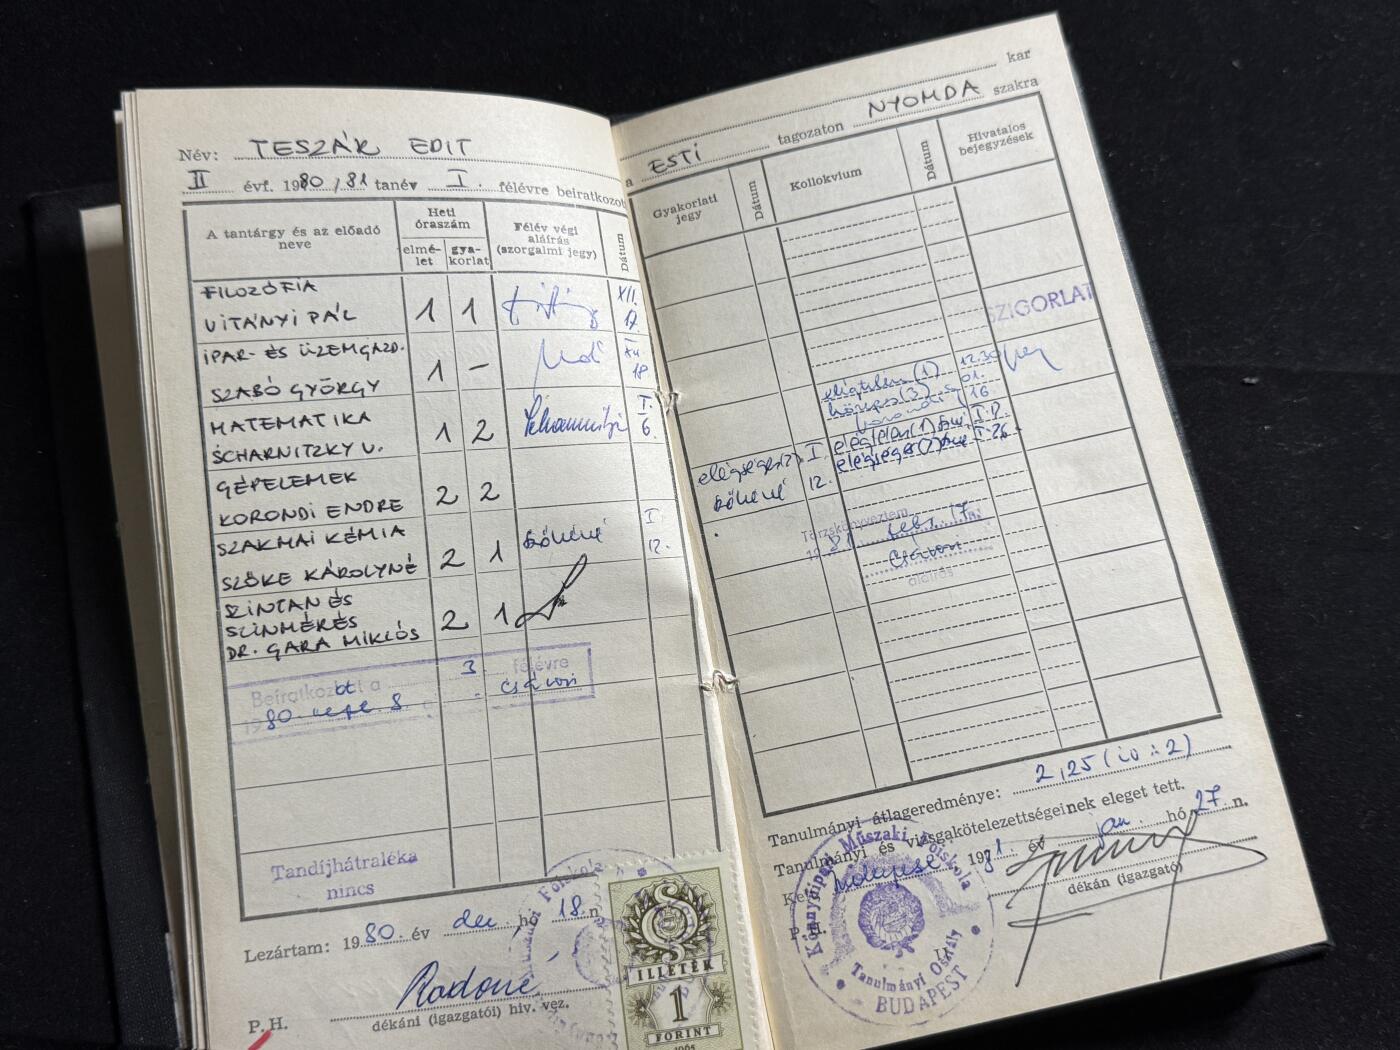 Név: TESZÁK EDIT
II évf. 1980/81 tanév I. félévre beiratkozott
A tantárgy és az előadó neve
Heti óraszám
elmé-
let
gya-
korlat
Félév végi
aláírás
(szorgalmi jegy)
Dátum
FILOZÓFIA
VITÁNYI PÁL 1 1 XII. 17
IPAR- ÉS ÜZEMGAZD.
SZABÓ GYÖRGY 1 - 18
MATEMATIKA
SCHARNITZKY V. 1 2 I. 6.
GÉPELEMEK
KORONDI ENDRE 2 2
SZAKMAI KÉMIA
SZŐKE KÁROLYNÉ 2 1 Szőkéné I. 12.
SZINTAN ÉS
SZINMÉRÉS
DR. GARA MIKLÓS 2 1
Beiratkozott a 3. félévre
1980. szept. 8.
Tandíjhátraléka
nincs
Lezártam: 1980. év dec. hó 18. n.
Radóné
P. H.
dékáni (igazgatói) hiv. vez.
ILLETÉK
1
FORINT
1965
kar
a ESTI tagozaton NYOMDA szakra
Gyakorlati
jegy
Dátum
Kollokvium
Dátum
Hivatalos
bejegyzések
SZIGORLAT
elégtelen (1) 12.30
közepes (3) 01. 16.
elégtelen (1) I. 12.
elégséges (2) I. 26.
elégséges (2) I.
Szőkéné 12.
Törzskönyveztem
1981 feb. 17.
aláírás
Tanulmányi átlageredménye: 2,25 (io :2)
Tanulmányi és vizsgakötelezettségeinek eleget tett.
Kelt Budapest, 1981. év jan. hó 27. n.
P. H.
dékán (igazgató)
Könnyűipari Műszaki Főiskola
Tanulmányi Osztály
BUDAPEST